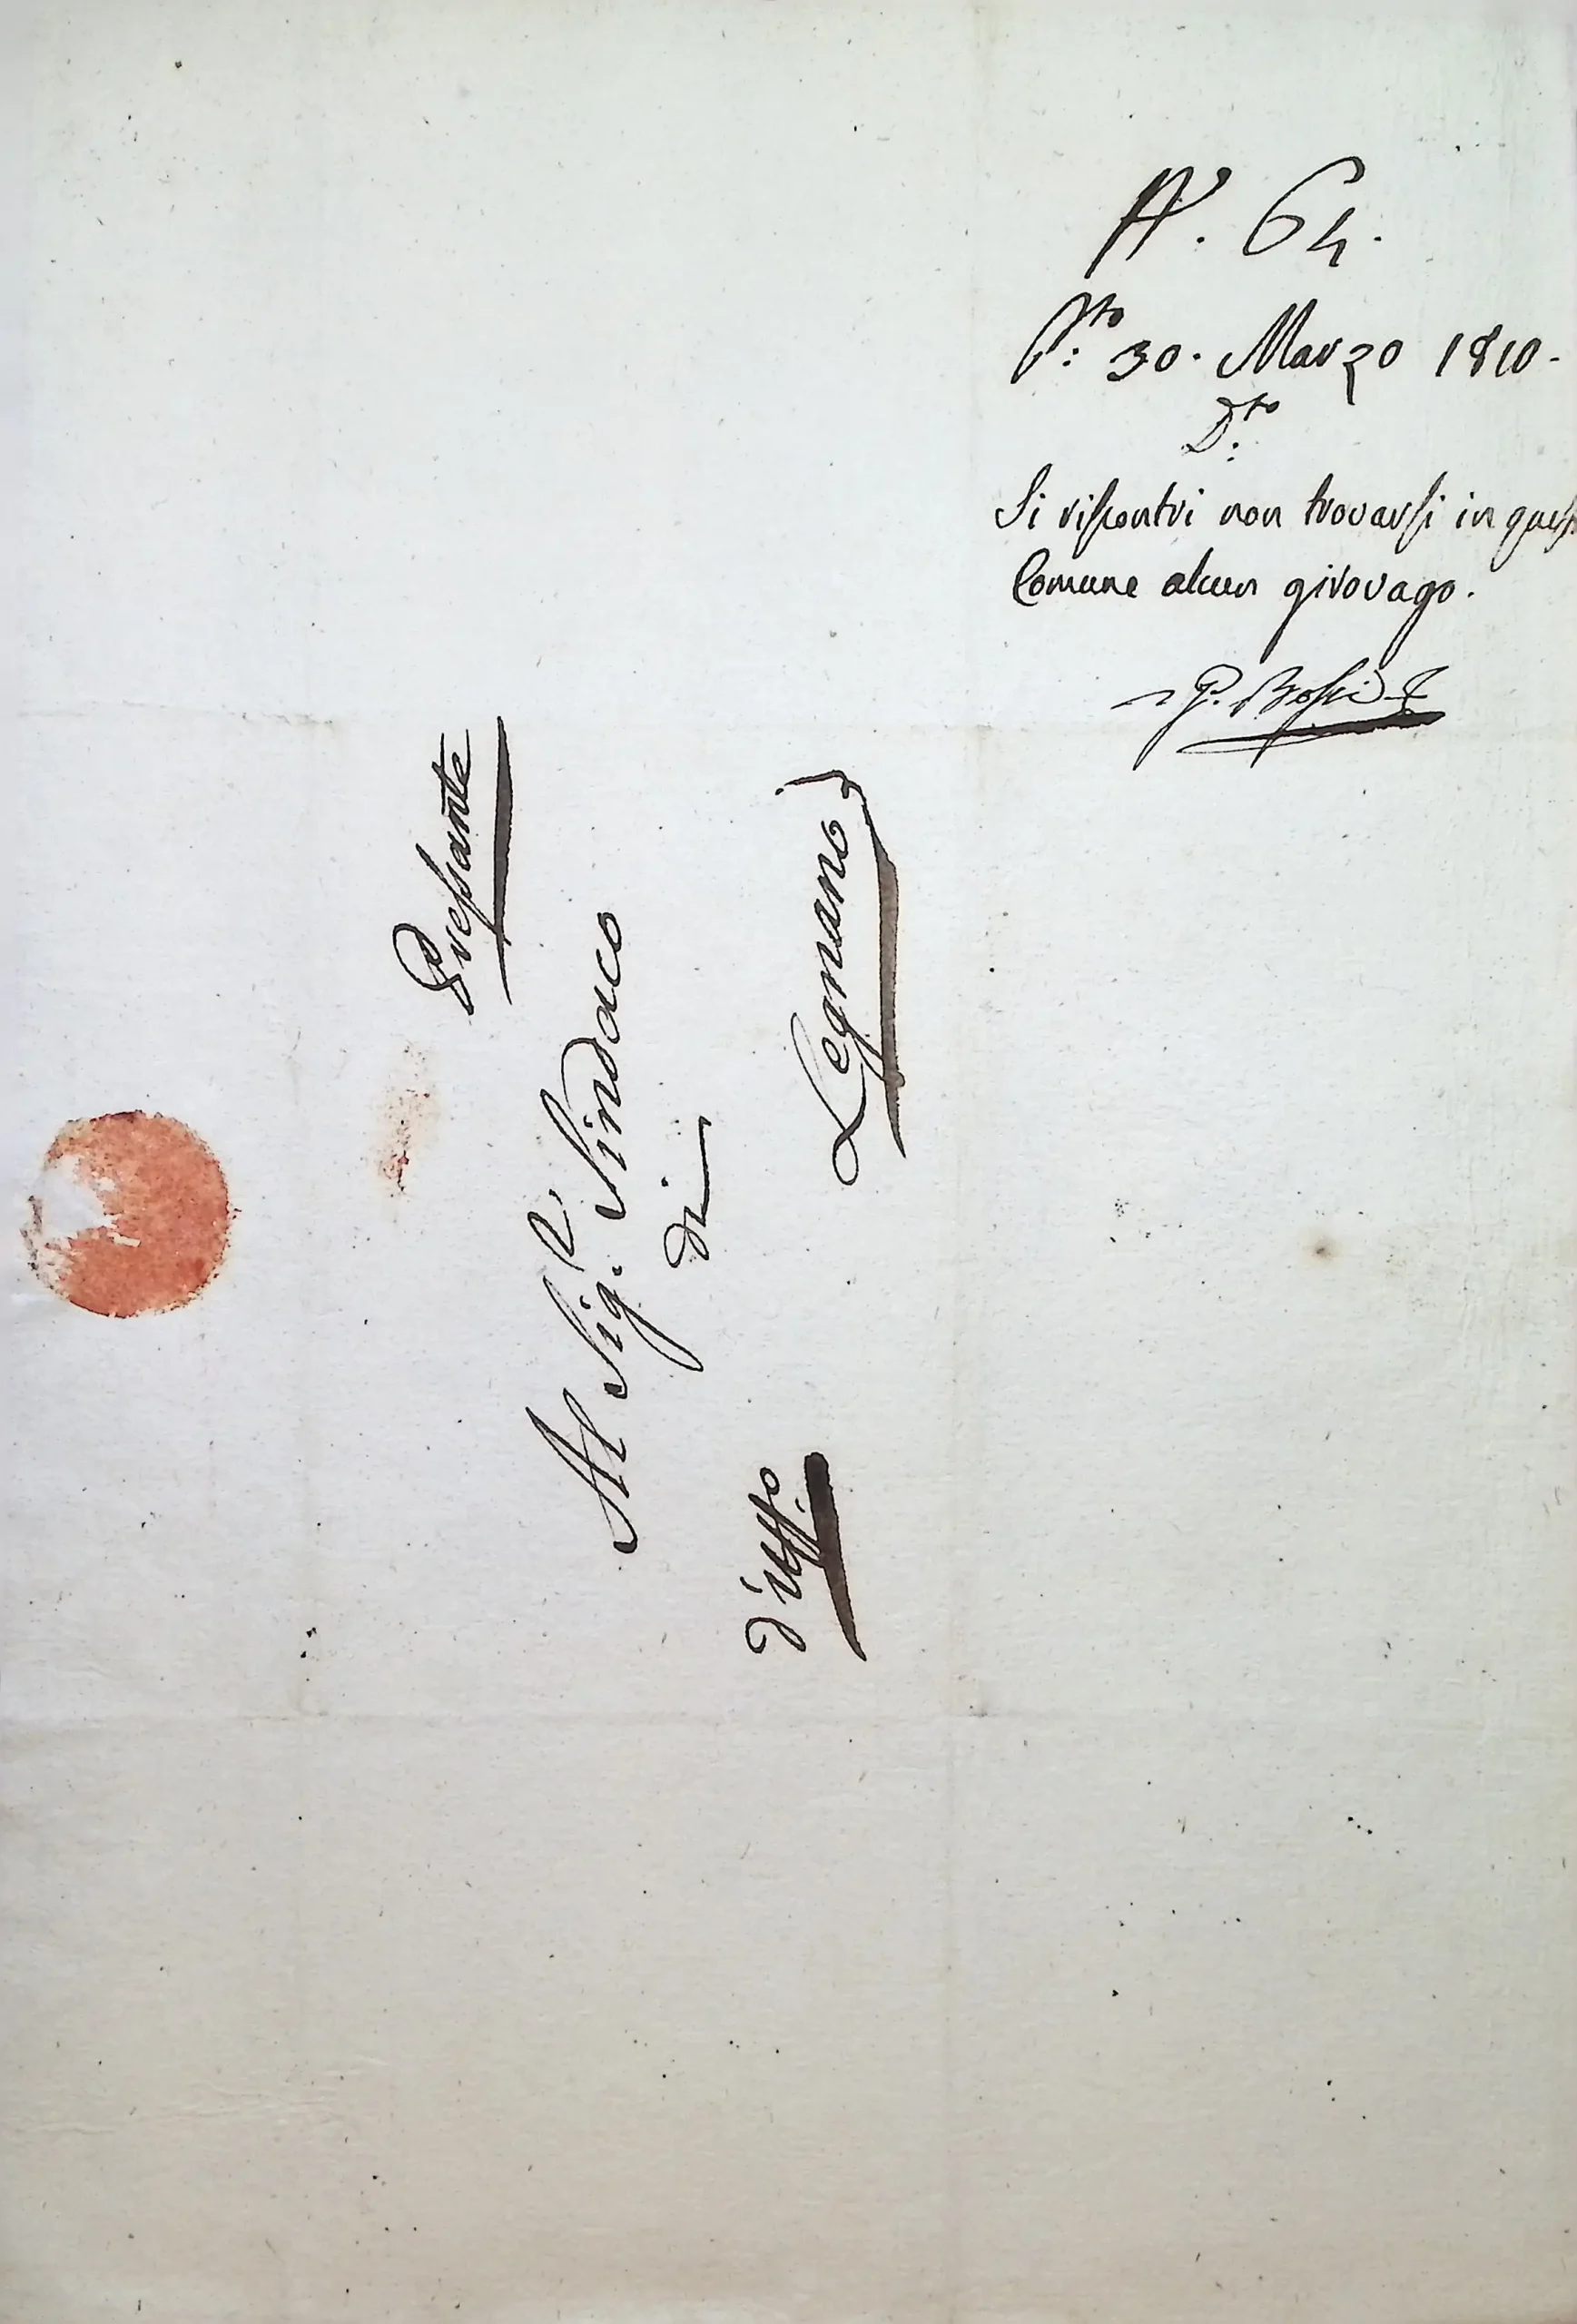 N.° 64.
P.to 30. Marzo 1810.
D.to
Si riscontri non trovarsi in questo
Comune alcun girovago.
G. Bossi
Pressante
Al Sig.r Sindaco
di
Legnano
d'uff.o